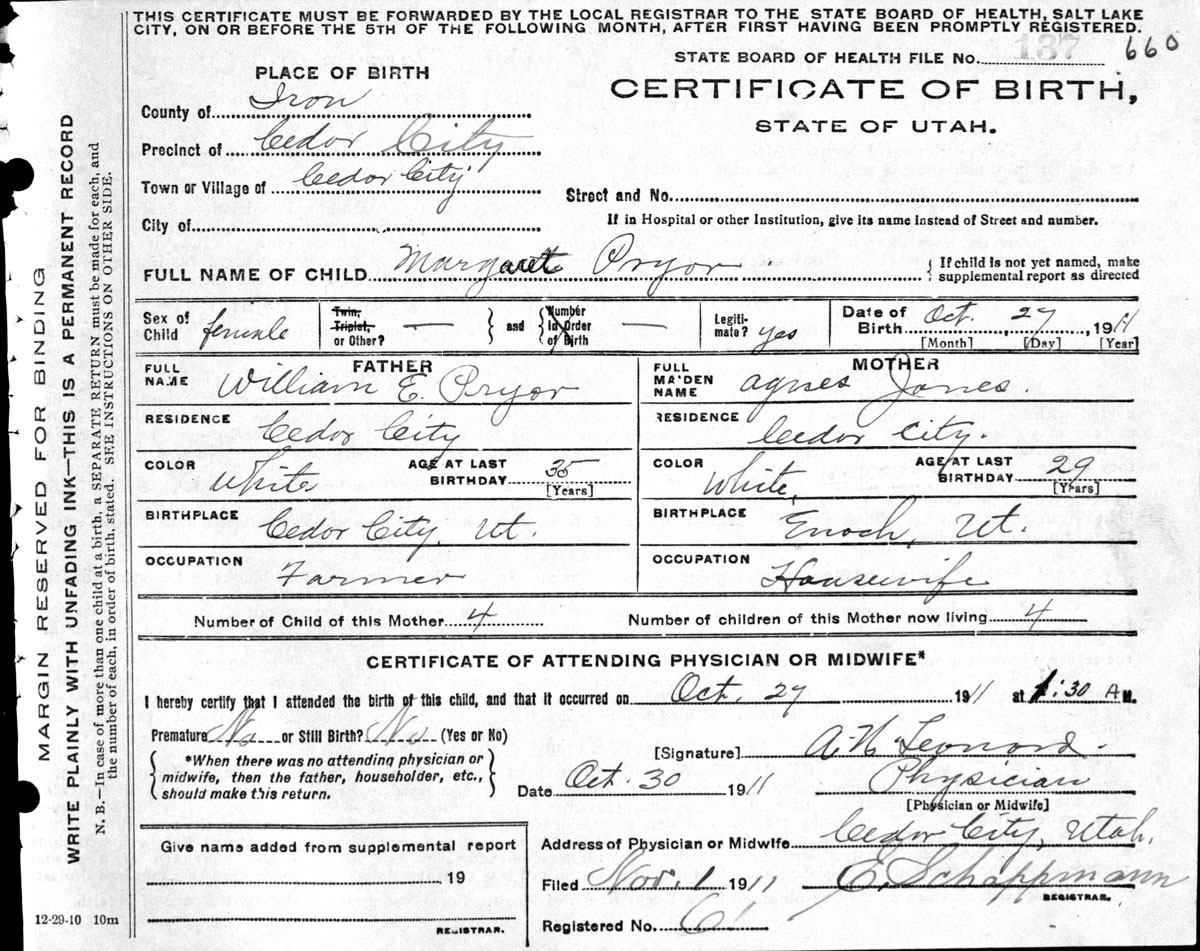 THIS CERTIFICATE MUST BE FORWARDED BY THE LOCAL REGISTRAR TO THE STATE BOARD OF HEALTH, SALT LAKE
CITY, ON OR BEFORE THE 5TH OF THE FOLLOWING MONTH, AFTER FIRST HAVING BEEN PROMPTLY REGISTERED.
STATE BOARD OF HEALTH FILE NO. 137 660
PLACE OF BIRTH
CERTIFICATE OF BIRTH,
STATE OF UTAH.
County of Iron
Precinct of Cedar City
Town or Village of Cedar City
Street and No.
City of
If in Hospital or other Institution, give its name instead of Street and number.
FULL NAME OF CHILD Margarete Pryor
{ If child is not yet named, make
supplemental report as directed
Sex of Child female
Twin, Triplet, or Other? — } and { Number in Order of Birth —
Legiti-mate? yes
Date of Birth Oct. 27, 1911
[Month] [Day] [Year]
FATHER
FULL NAME William E. Pryor
RESIDENCE Cedar City
COLOR White
AGE AT LAST BIRTHDAY 35 [Years]
BIRTHPLACE Cedar City, Ut.
OCCUPATION Farmer
MOTHER
FULL MAIDEN NAME Agnes Jones.
RESIDENCE Cedar City.
COLOR White,
AGE AT LAST BIRTHDAY 29 [Years]
BIRTHPLACE Enoch, Ut.
OCCUPATION Housewife
Number of Child of this Mother 4 Number of children of this Mother now living 4
CERTIFICATE OF ATTENDING PHYSICIAN OR MIDWIFE*
I hereby certify that I attended the birth of this child, and that it occurred on Oct. 27 1911 at 1:30 A M.
Premature No or Still Birth? No (Yes or No)
*When there was no attending physician or
midwife, then the father, householder, etc.,
should make this return.
[Signature] A.N. Leonard.
Date Oct. 30 1911 Physician
[Physician or Midwife]
Address of Physician or Midwife Cedar City, Utah.
Filed Nov. 1 1911 E. Schappmann
REGISTRAR.
Registered No.
Give name added from supplemental report
19
REGISTRAR.
12-29-10 10m
MARGIN RESERVED FOR BINDING
WRITE PLAINLY WITH UNFADING INK—THIS IS A PERMANENT RECORD
N. B.—In case of more than one child at a birth, a SEPARATE RETURN must be made for each, and
the number of each, in order of birth, stated. SEE INSTRUCTIONS ON OTHER SIDE.